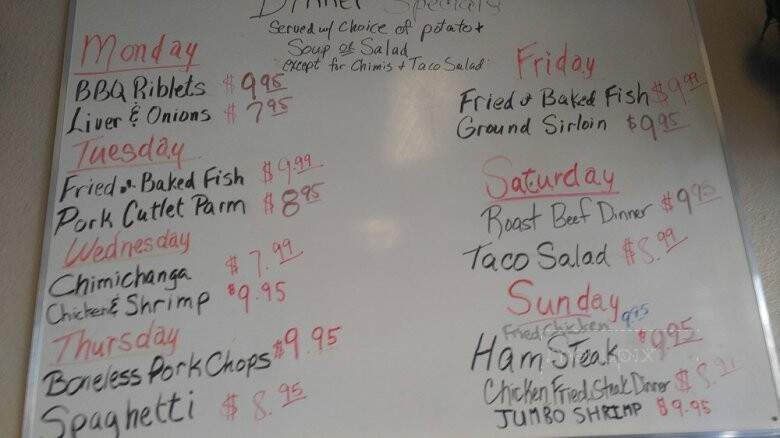 Dinner Specials
Served w/ choice of potato +
Soup or Salad
"except for Chimis + Taco Salad"
Monday
BBQ Riblets $9.95
Liver & Onions $7.95
Tuesday
Fried or Baked Fish $9.99
Pork Cutlet Parm $8.95
Wednesday
Chimichanga $7.99
Chicken & Shrimp $9.95
Thursday
Boneless Pork Chops $9.95
Spaghetti $8.95
Friday
Fried or Baked Fish $9.99
Ground Sirloin $9.95
Saturday
Roast Beef Dinner $9.95
Taco Salad $8.99
Sunday
Fried Chicken 9.95
Ham Steak $9.95
Chicken Fried Steak Dinner
JUMBO SHRIMP $9.95